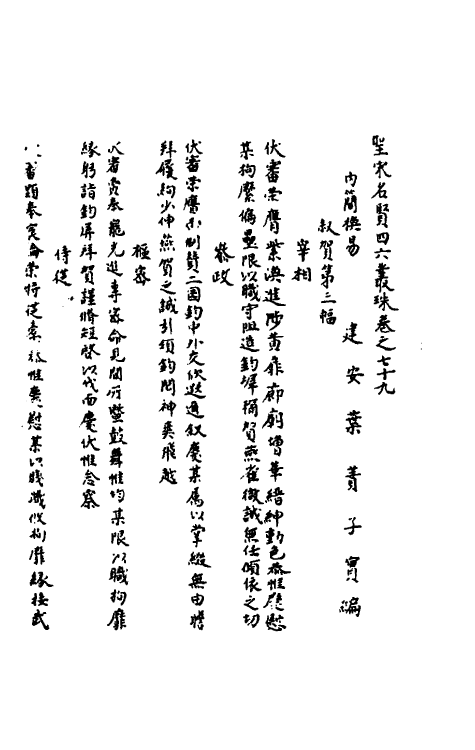 聖宋名賢四六叢珠卷之七十九
建安葉蕡子實編
內簡換易
敘賀第三幅
宰相
伏審榮膺紫渙進陟黃扉廊廟增華縉紳動色恭惟慶慰
某拘縻偏壘限以職守阻造鈞墀稱賀燕雀微誠無任傾依之切
參政
伏審榮膺制贊二國鈞中外交欣遐邇敘慶某属以掌縱無由躋
拜履絇少伸燕賀之誠引領鈞閎神與飛越
樞密
伏審光進專密命見聞所曁鼓舞惟均某限以職拘靡
緣躬詣鈞屏拜賀謹脩短啓以代面慶伏惟念察
侍從
審顯奉宸綸榮持從橐惟慰某以賤職攸拘靡緣接武